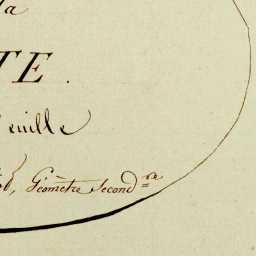 la
TE.
euille
Géomètre Second.re